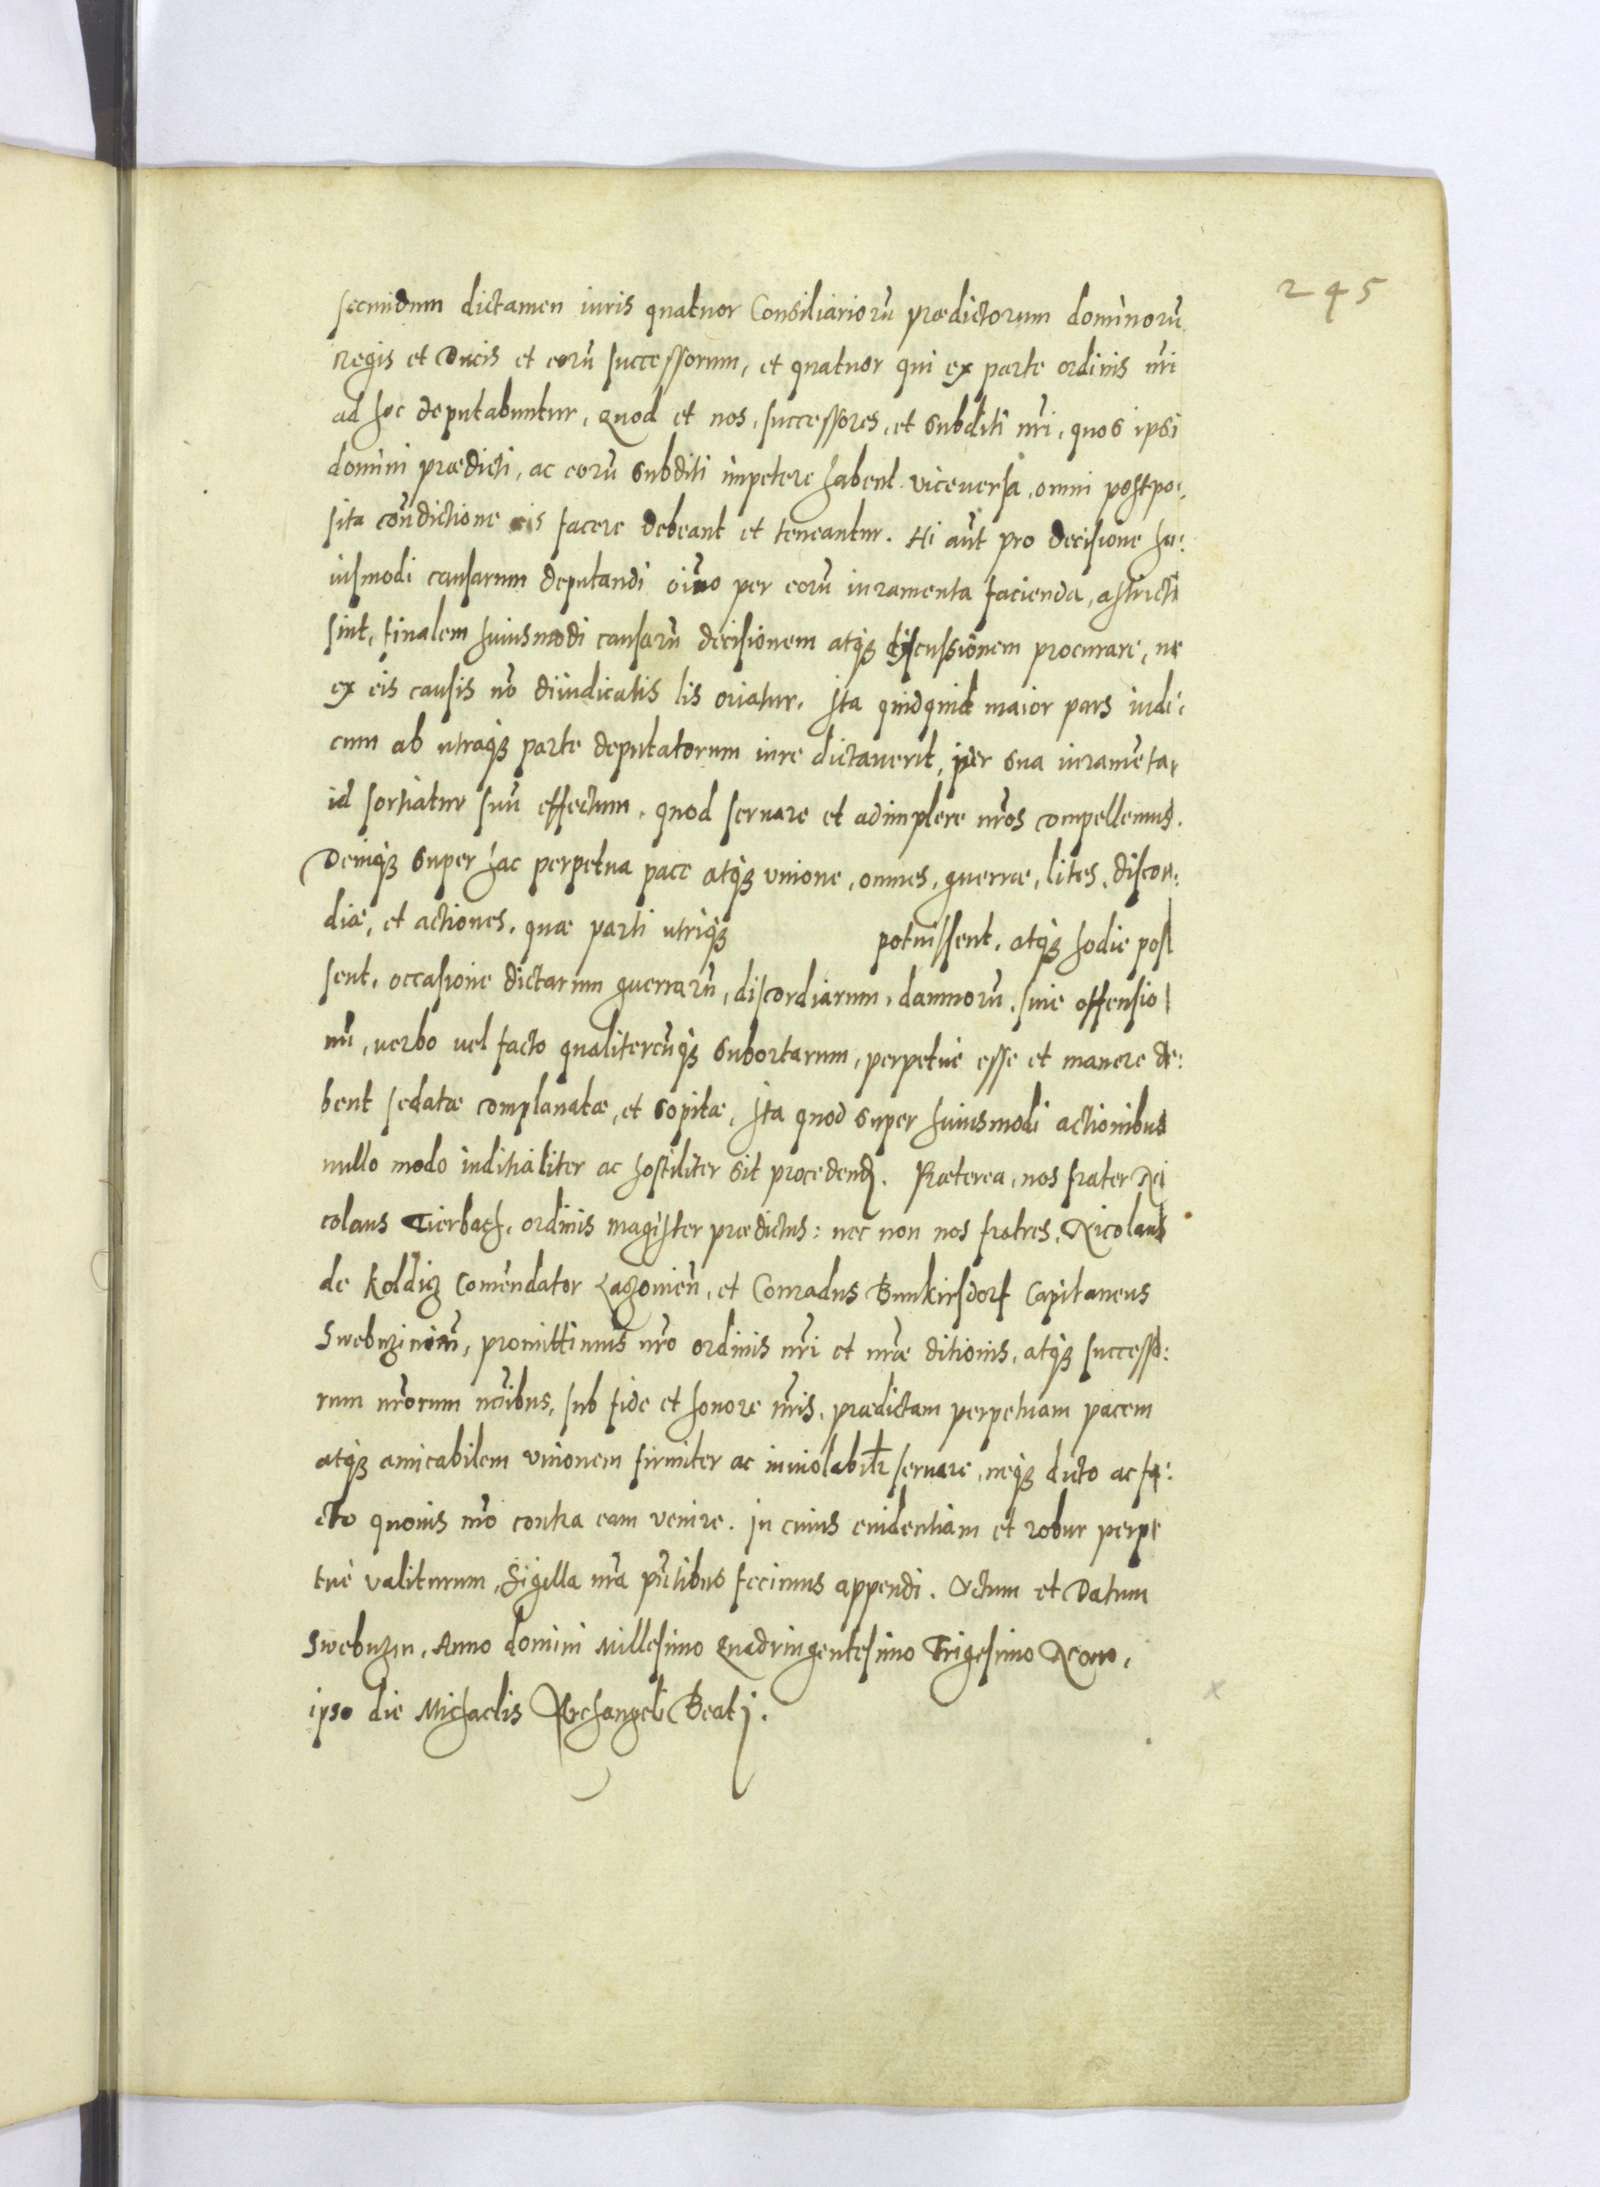 245
secundum dictamen iuris quatuor Consiliariorũ prædictorum dominorũ
Regis et Ducis et eorũ successorum, et quatuor qui ex parte ordinis nr̃i
ad hoc deputabuntur, quod et nos, successores, et subditi nr̃i, quos ipsi
domini prædicti, ac eorũ subditi impetere habent viceversa, omni postpo:
sita con̄dictione eis facere debeant et teneantur. Hi aũt pro decisione hu:
iusmodi causarum deputandi oĩno per eorũ iuramenta facienda, astricti
sint, finalem huiusmodi causarũ decisionem atqꝫ discussionem procurare, ne
ex eis causis nõ diiudicatis lis oriatur. Ita quidquid maior pars iudi:
cum ab utraqꝫ parte deputatorum iure dictaverit, per sua iuramẽta,
id sortiatur suũ effectum, quod servare et adimplere nr̃os compellemus.
Deniqꝫ super hac perpetua pace atqꝫ unione, omnes, guerræ, lites, discor:
diæ, et actiones, quæ parti utriqꝫ potuissent, atqꝫ hodie pos
sent, occasione dictarum guerrarũ, discordiarum, damnorũ, sive offensio
nũ, verbo vel facto qualitercũqꝫ subortarum, perpetue esse et manere de:
bent sedatæ complanatæ, et sopitæ, Ita quod super huiusmodi actionibus
nullo modo inditialiter ac hostiliter sit procedend. Præterea, nos frater Ni
colaus Tierbach, ordinis magister prædictus: nec non nos fratres, Nicolaus
de Koldiz Comẽndator Lagoniẽn, et Conradus Bunkirsdorf Capitaneus
promittimus nr̃o ordinis nr̃i et nr̃æ ditionis, atqꝫ successo:
rum nr̃orum nõibus, sub fide et honore nr̃is, prædictam perpetuam pacem
atqꝫ amicabilem unionem firmiter ac inviolabilr̃ servare, neqꝫ dicto ac fa:
cto quovis mõ contra eam venire. In cuius evidentiam et robur perpe
tue valiturum, Sigilla nr̃a pñtibus fecimus appendi. Actum et Datum
Swebuzin, Anno domini Millesimo Quadringentesimo Trigesimo Nono,
ipso die Michaelis Archangeli Beatj.